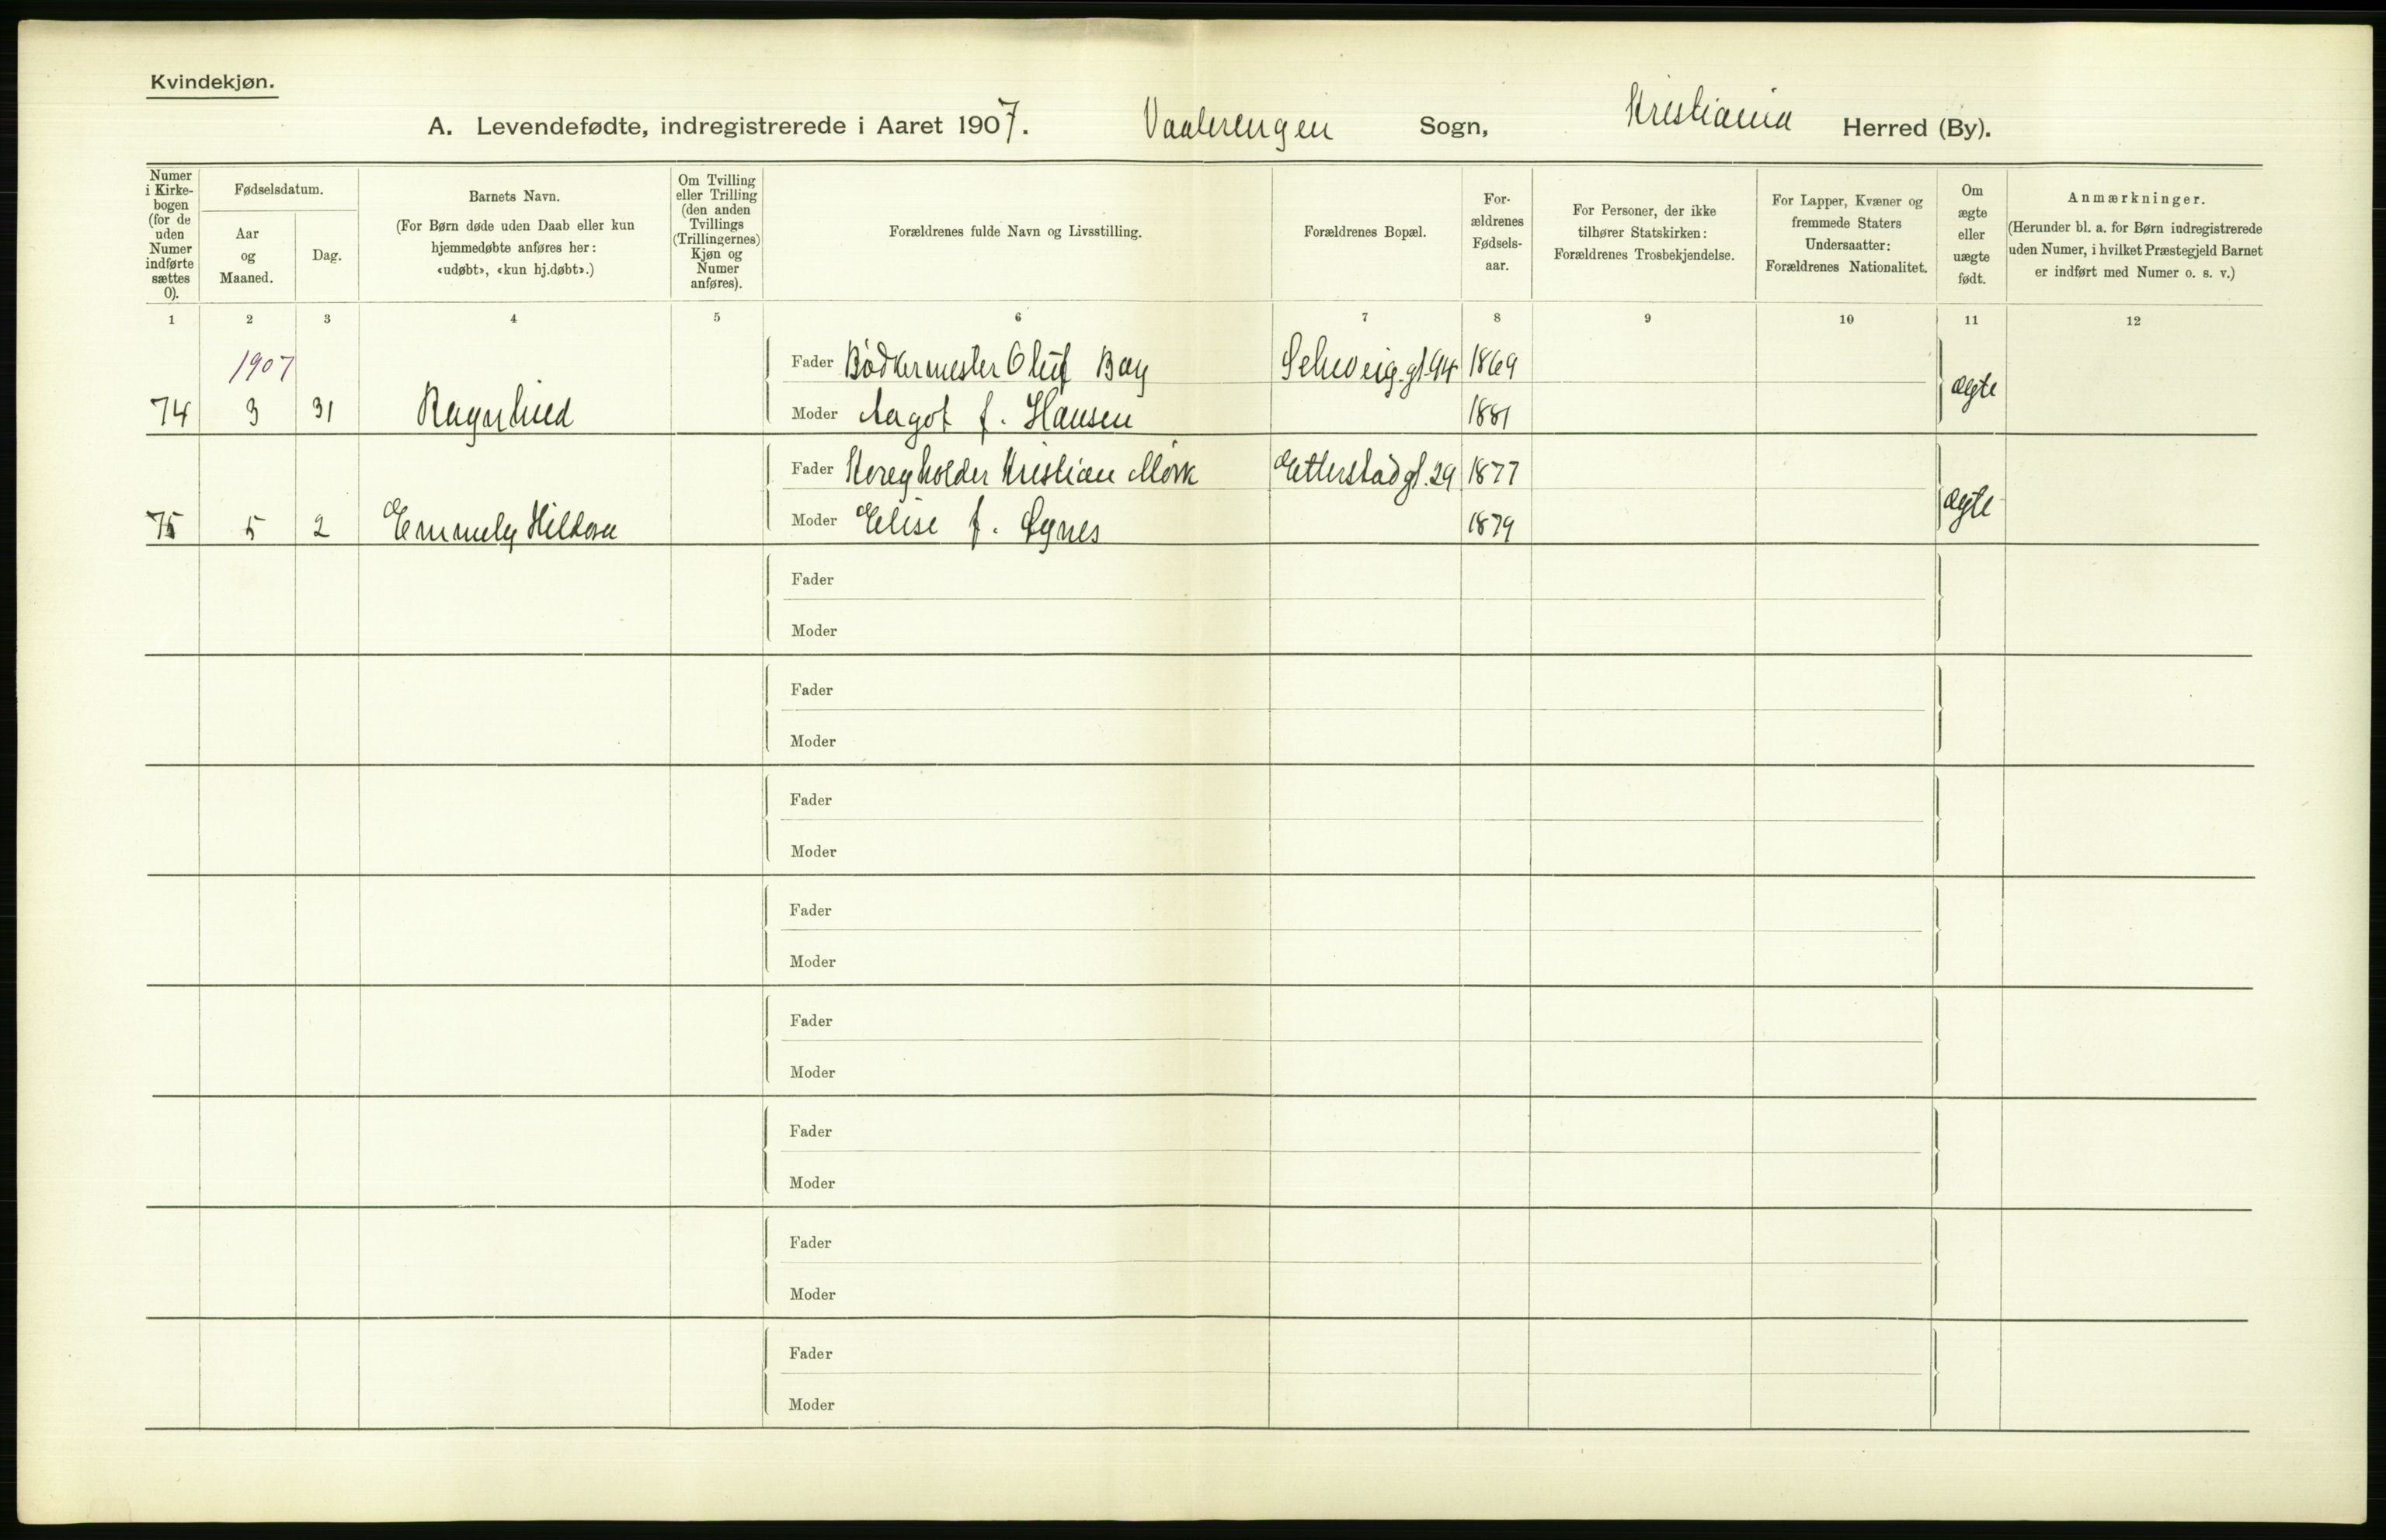 Kvindekjøn.
A. Levendefødte, indregistrerede i Aaret 1907. Vaalerengen Sogn, Kristiania Herred (By).
Numer i Kirkebogen (for de uden Numer indførte sættes 0).
Fødselsdatum.
Aar og Maaned.
Dag.
Barnets Navn.
(For Børn døde uden Daab eller kun hjemmedøbte anføres her: «udøbt», «kun hj.døbt».)
Om Tvilling eller Trilling (den anden Tvillings (Trillingernes) Kjøn og Numer anføres).
Forældrenes fulde Navn og Livsstilling.
Forældrenes Bopæl.
Forældrenes Fødselsaar.
For Personer, der ikke tilhører Statskirken: Forældrenes Trosbekjendelse.
For Lapper, Kvæner og fremmede Staters Undersaatter: Forældrenes Nationalitet.
Om ægte eller uægte født.
Anmærkninger.
(Herunder bl. a. for Børn indregistrerede uden Numer, i hvilket Præstegjeld Barnet er indført med Numer o. s. v.)
1 2 3 4 5 6 7 8 9 10 11 12
1907 Fader Bödkermester Oluf Bay Schweig.gt 94 1869
74 3 31 Ragnhild Moder Aagot f. Hansen 1881 ægte
Fader Kristian Mörk Etterstadgt. 29 1877
75 5 2 Emmely Moder Elise f. 1879 ægte
Fader
Moder
Fader
Moder
Fader
Moder
Fader
Moder
Fader
Moder
Fader
Moder
Fader
Moder
Fader
Moder